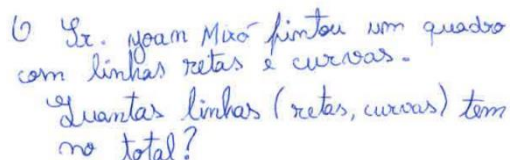 O Sr. Yoam Miró pintou um quadro
com linhas retas e curvas.
Quantas linhas (retas, curvas) tem
no total?